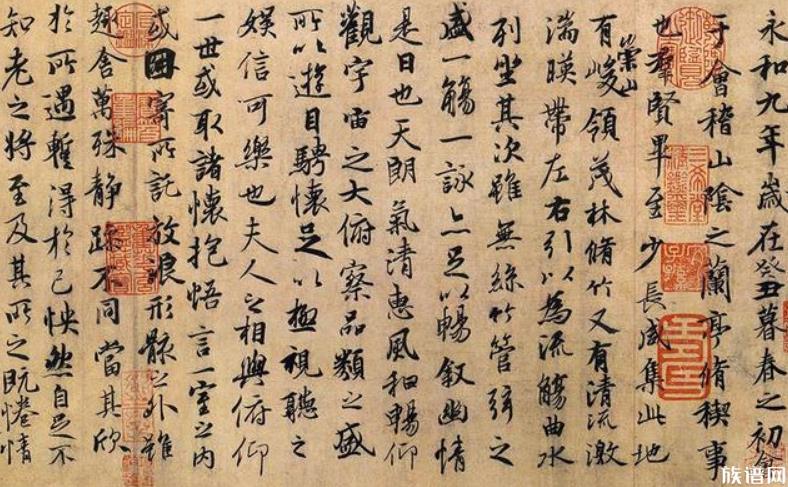 永和九年歲在癸丑暮春之初會
于會稽山陰之蘭亭脩稧事
也羣賢畢至少長咸集此地
有崇山峻領茂林脩竹又有清流激
湍暎帶左右引以為流觴曲水
列坐其次雖無絲竹管弦之
盛一觴一詠亦足以暢叙幽情
是日也天朗氣清惠風和暢仰
觀宇宙之大俯察品類之盛
所以遊目騁懷足以極視聽之
娛信可樂也夫人之相與俯仰
一世或取諸懷抱悟言一室之內
或因寄所託放浪形骸之外雖
趣舍萬殊静躁不同當其欣
於所遇蹔得於己怏然自足不
知老之將至及其所之既惓情
族谱网
www.zupu.cn